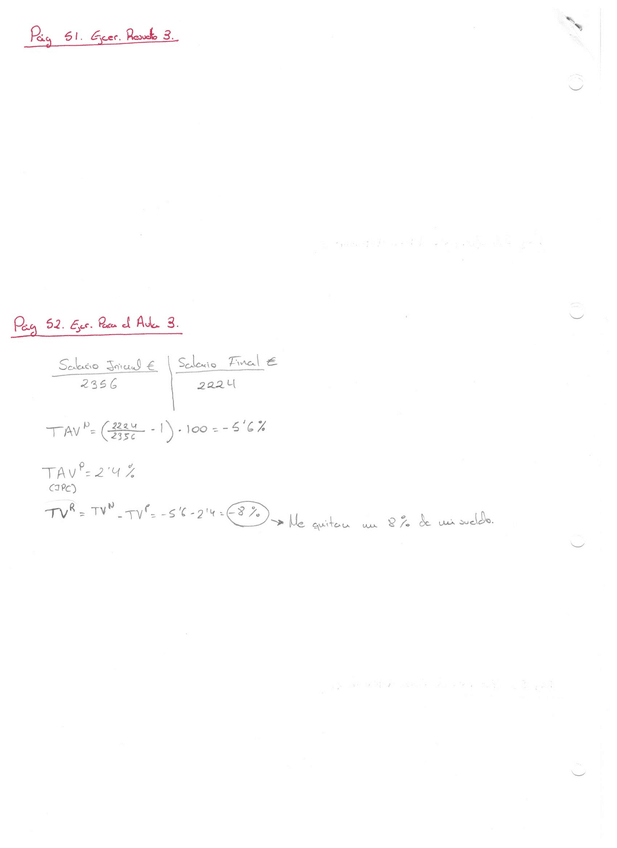 Pág 51. Ejer. Resuelto 3.
Pag 52. Ejer. Para el Aula 3.
Salario Inicial € | Salario Final €
2356 | 2224
TAVᴺ = (2224/2356 - 1) · 100 = -5'6 %
TAVᴾ = 2'4 %
(IPC)
TVᴿ = TVᴺ - TVᴾ = -5'6 - 2'4 = -8 % → Me quitan un 8 % de mi sueldo.